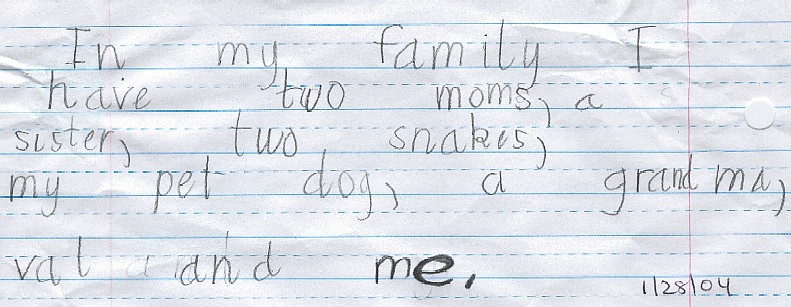 In my family I
have two moms, a
sister, two snakes,
my pet dog, a grand ma,
val and me.
1/28/04